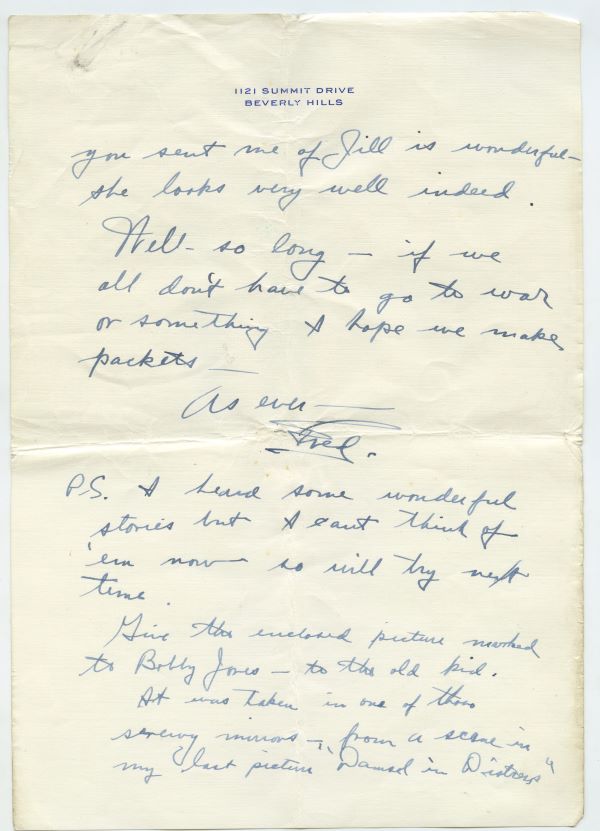 1121 SUMMIT DRIVE
BEVERLY HILLS
you sent me of Jill is wonderful –
she looks very well indeed.
Well – so long – if we
all don't have to go to war
or something I hope we make
packets —
As ever —
Fred.
P.S. I heard some wonderful
stories but I cant think of
'em now so will try next
time.
Give the enclosed picture marked
to Bobby Jones – to the old kid.
It was taken in one of those
screwy mirrors – from a scene in
my last picture "Damsel in Distress"